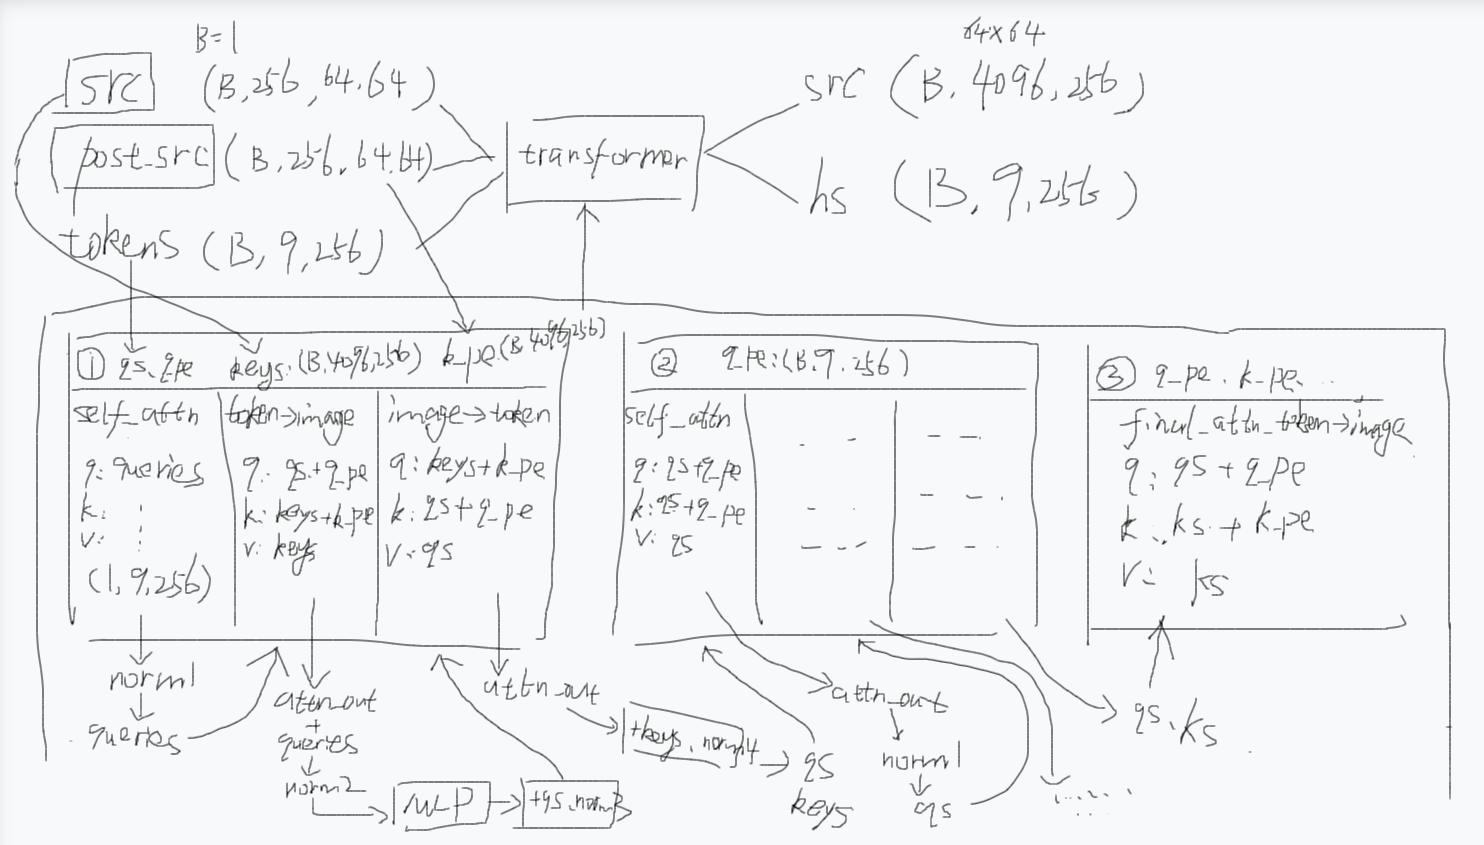 B=1
64×64
src (B,256,64.64)
post_src (B,256,64.64)
tokens (B,9,256)
transformer
src (B.4096,256)
hs (B,9,256)
① qs.q_pe keys:(B.4096,256) k_pe.(B.4096,256)
self_attn
q: queries
k:
v:
(1,9,256)
token→image
q: qs+q_pe
k: keys+k_pe
v: keys
image→token
q: keys+k_pe
k: qs+q_pe
v: qs
② q_pe:(B.9.256)
self_attn
q: qs+q_pe
k: qs+q_pe
v: qs
③ q_pe. k_pe. ...
final_attn_token→image
q: qs+q_pe
k: ks+k_pe
v: ks
norm1
queries
attn_out
+
queries
norm2
MLP
+qs.norm3
attn_out
+keys.norm4
qs
keys
attn_out
norm1
qs
......
qs.ks